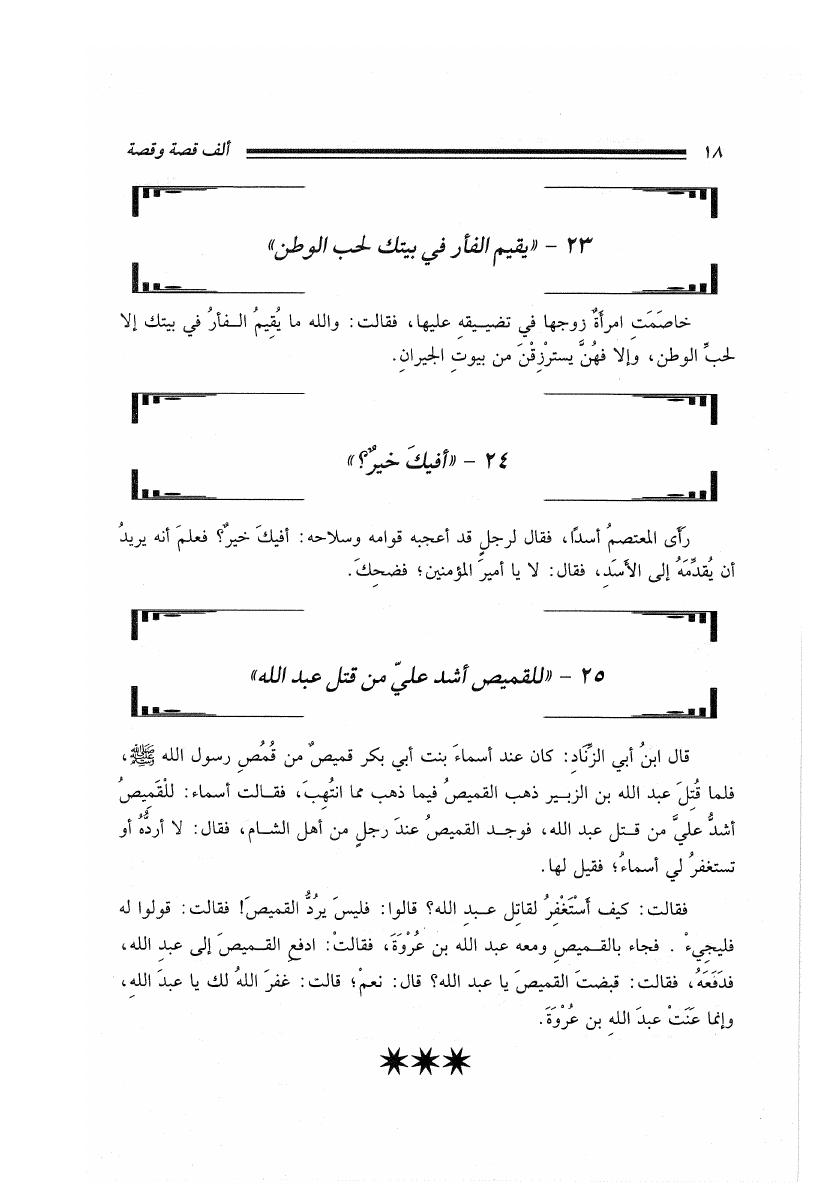 ١٨ ألف قصة وقصة
٢٣ - «يقيم الفأر في بيتك لحب الوطن»
خاصَمَتِ امرأةٌ زوجها في تضييقهِ عليها، فقالت: والله ما يُقِيمُ الفأرُ في بيتك إلا
لحبِّ الوطن، وإلا فهُنَّ يسترْزِقْنَ من بيوتِ الجيرانِ.
٢٤ - «أفيكَ خيرٌ؟»
رأَى المعتصمُ أسدًا، فقال لرجلٍ قد أعجبه قوامه وسلاحه: أفيكَ خيرٌ؟ فعلمَ أنه يريدُ
أن يُقدِّمَهُ إلى الأَسَدِ، فقال: لا يا أميرَ المؤمنين؛ فضحِكَ.
٢٥ - «للقميص أشد عليّ من قتل عبد الله»
قال ابنُ أبي الزِّنَادِ: كان عند أسماءَ بنت أبي بكر قميصٌ من قُمُصِ رسول الله ﷺ،
فلما قُتِلَ عبد الله بن الزبير ذهب القميصُ فيما ذهب مما انتُهِبَ، فقالت أسماء: للْقَمِيصُ
أشدُّ عليَّ من قتل عبد الله، فوجد القميصُ عندَ رجلٍ من أهل الشام، فقال: لا أردُّهُ أو
تستغفرُ لي أسماءُ؛ فقيل لها.
فقالت: كيف أسْتَغْفِرُ لقاتِل عبدِ الله؟ قالوا: فليسَ يردُّ القميصَ! فقالت: قولوا له
فليجِيءْ . فجاء بالقميصِ ومعه عبد الله بن عُرْوَةَ، فقالتْ: ادفعِ القميصَ إلى عبدِ الله،
فدَفَعَهُ، فقالت: قبضتَ القميصَ يا عبد الله؟ قال: نعمْ؛ قالت: غفرَ اللهُ لك يا عبدَ اللهِ،
وإنما عَنَتْ عبدَ اللهِ بن عُرْوَةَ.